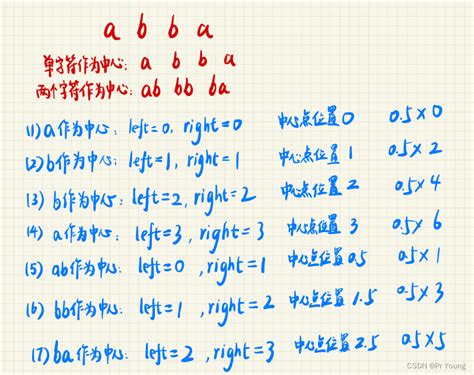 a b b a
单字符作为中心: a b b a
两个字符作为中心: ab bb ba
(1) a作为中心: left=0, right=0 中心点位置0 0.5×0
(2) b作为中心: left=1, right=1 中心点位置 1 0.5×2
(3) b作为中心: left=2, right=2 中心点位置 2 0.5×4
(4) a作为中心: left=3, right=3 中心点位置 3 0.5×6
(5) ab作为中心: left=0, right=1 中心点位置0.5 0.5×1
(6) bb作为中心: left=1, right=2 中心点位置1.5 0.5×3
(7) ba作为中心: left=2, right=3 中心点位置2.5 0.5×5
CSDN @Pr Young